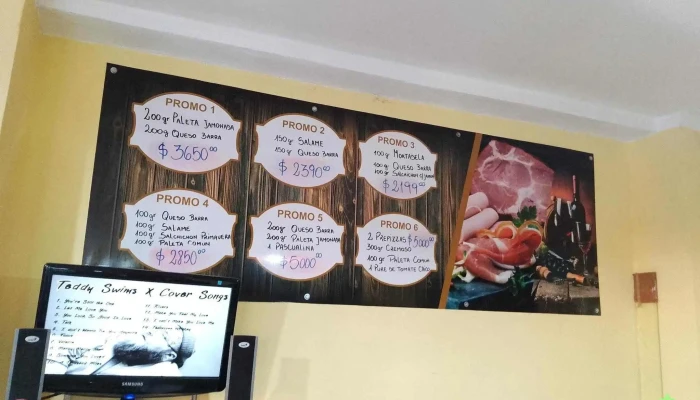 PROMO 1
200gr PALETA JAMONADA
200gr QUESO BARRA
$3650⁰⁰
PROMO 2
150gr SALAME
150gr QUESO BARRA
$2390⁰⁰
PROMO 3
100gr MORTADELA
100gr QUESO BARRA
100gr SALCHICHON C/JAMON
$2199⁰⁰
PROMO 4
100gr QUESO BARRA
100gr SALAME
100gr SALCHICHON PRIMAVERA
100gr PALETA COMUN
$2850⁰⁰
PROMO 5
200gr QUESO BARRA
200gr PALETA JAMONADA
1 PASCUALINA
$5000⁰⁰
PROMO 6
2 PREPIZZAS $5000⁰⁰
300gr CREMOSO
100gr PALETA COMUN
1 PURE DE TOMATE CHICO
Teddy Swims X Cover Songs
1. You're Still the One
2. Let Me Love You
3. You Look So Good In Love
SAMSUNG